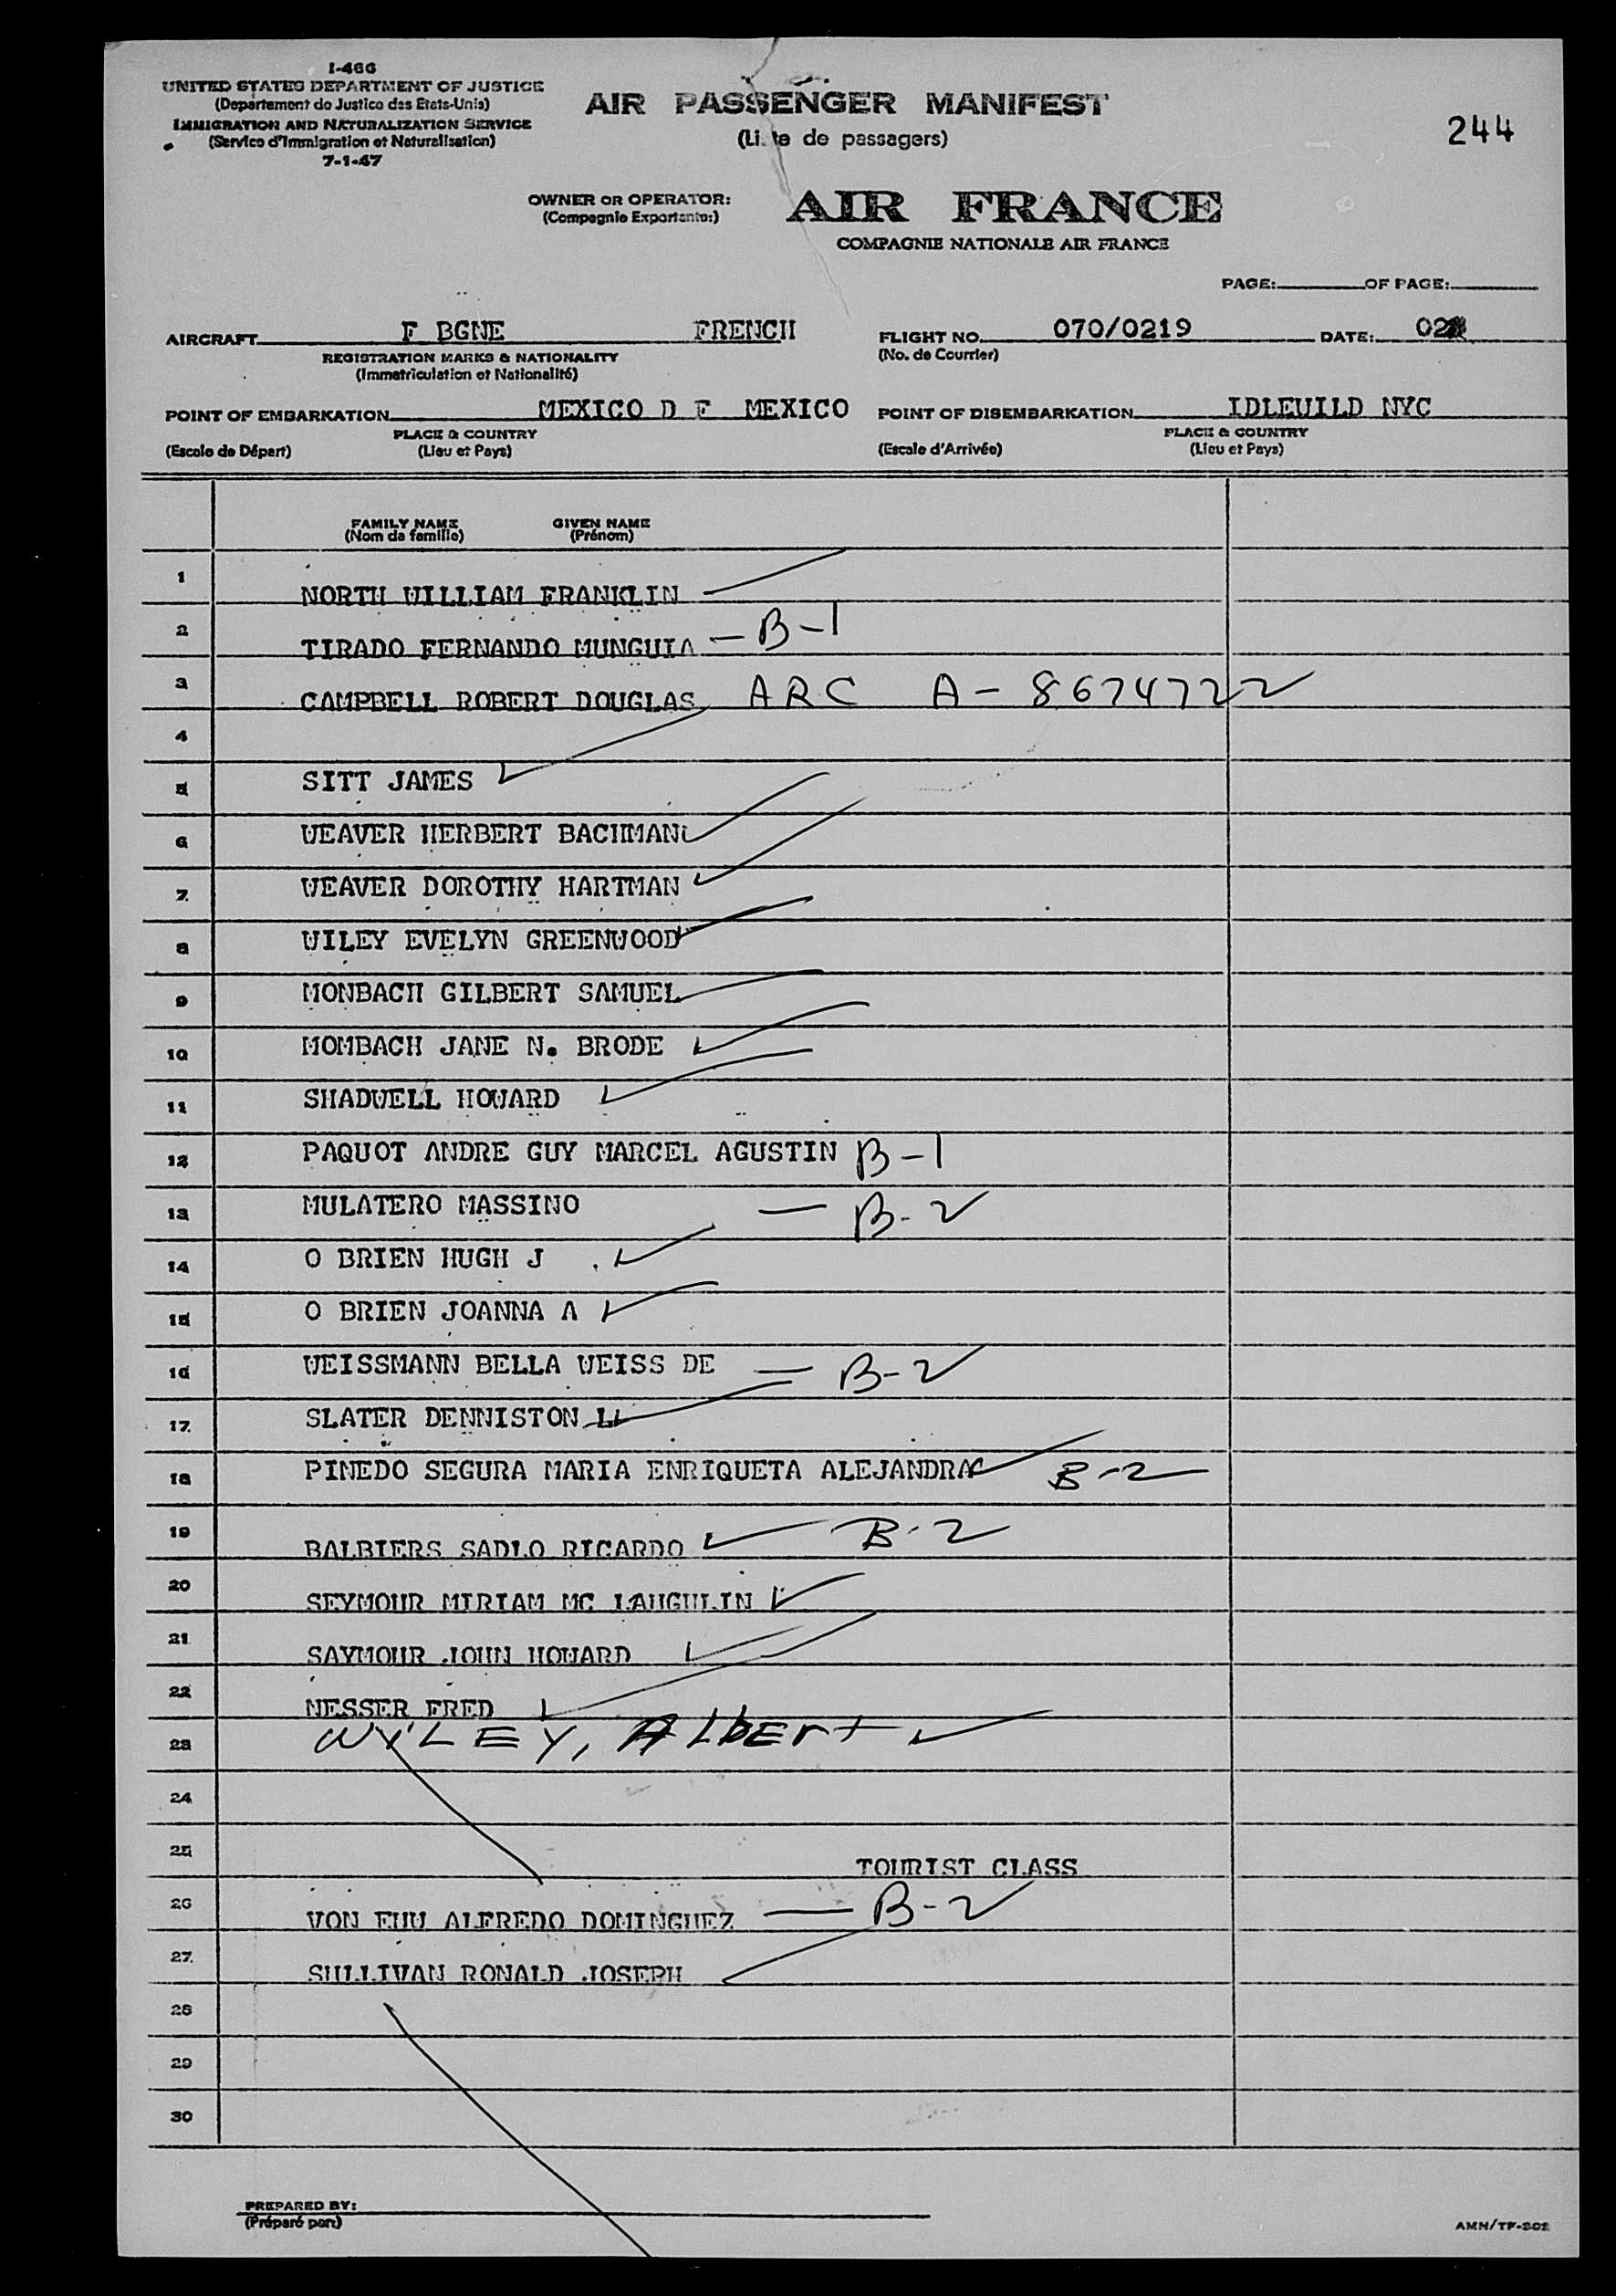 I-466
UNITED STATES DEPARTMENT OF JUSTICE
(Departement de Justice des Etats-Unis)
IMMIGRATION AND NATURALIZATION SERVICE
(Service d'Immigration et Naturalisation)
7-1-47
AIR PASSENGER MANIFEST
(Liste de passagers)
244
OWNER OR OPERATOR: AIR FRANCE
(Compagnie Exportante:)
COMPAGNIE NATIONALE AIR FRANCE
PAGE: OF PAGE:
AIRCRAFT F BGNE FRENCH FLIGHT NO. 070/0219 DATE: 02
REGISTRATION MARKS & NATIONALITY (No. de Courrier)
(Immatriculation et Nationalité)
POINT OF EMBARKATION MEXICO D F MEXICO POINT OF DISEMBARKATION IDLEWILD NYC
PLACE & COUNTRY PLACE & COUNTRY
(Escale de Départ) (Lieu et Pays) (Escale d'Arrivée) (Lieu et Pays)
FAMILY NAME GIVEN NAME
(Nom de famille) (Prénom)
1 NORTH WILLIAM FRANKLIN
2 TIRADO FERNANDO MUNGUIA — B-1
3 CAMPBELL ROBERT DOUGLAS ARC A-8674722
4
5 SITT JAMES
6 WEAVER HERBERT BACHMAN
7 WEAVER DOROTHY HARTMAN
8 WILEY EVELYN GREENWOOD
9 MONBACH GILBERT SAMUEL
10 MOMBACH JANE N. BRODE
11 SHADWELL HOWARD
12 PAQUOT ANDRE GUY MARCEL AGUSTIN B-1
13 MULATERO MASSINO — B-2
14 O BRIEN HUGH J
15 O BRIEN JOANNA A
16 WEISSMANN BELLA WEISS DE — B-2
17 SLATER DENNISTON L
18 PINEDO SEGURA MARIA ENRIQUETA ALEJANDRA B-2
19 BALBIERS SADLO RICARDO B-2
20 SEYMOUR MIRIAM MC LAUGHLIN
21 SAYMOUR JOHN HOWARD
22 NESSER FRED
23 WYLEY, Albert
24
25 TOURIST CLASS
26 VON EUW ALFREDO DOMINGUEZ — B-2
27 SULLIVAN RONALD JOSEPH
28
29
30
PREPARED BY:
(Préparé par)
AMN/TF-202